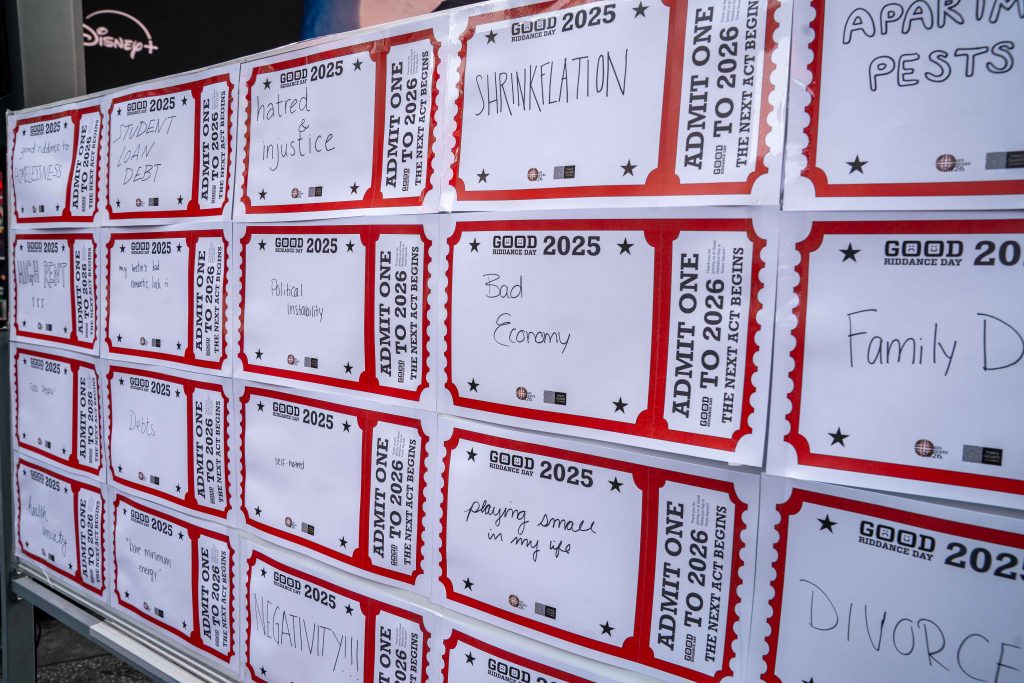 Disney+
GOOD 2025
RIDDANCE DAY
good riddance to
HOMELESSNESS
ADMIT ONE
TO 2026
THE NEXT ACT BEGINS
GOOD 2025
STUDENT
LOAN
DEBT
ADMIT ONE
GOOD TO 2026
THE NEXT ACT BEGINS
GOOD 2025
RIDDANCE DAY
hatred
&
injustice
ADMIT ONE
GOOD TO 2026
THE NEXT ACT BEGINS
GOOD 2025
RIDDANCE DAY
SHRINKFLATION
ADMIT ONE
GOOD TO 2026
THE NEXT ACT BEGINS
APARTM
PESTS
GOOD 2025
HIGH RENT
$$$
ADMIT ONE
TO 2026
THE NEXT ACT BEGINS
GOOD 2025
my bestie's bad
romantic luck
ADMIT ONE
TO 2026
THE NEXT ACT BEGINS
GOOD 2025
RIDDANCE DAY
Political
Instability
ADMIT ONE
GOOD TO 2026
THE NEXT ACT BEGINS
GOOD 2025
RIDDANCE DAY
Bad
Economy
ADMIT ONE
GOOD TO 2026
THE NEXT ACT BEGINS
GOOD 20
RIDDANCE DAY
Family D
GOOD 2025
ADMIT ONE
TO 2026
THE NEXT ACT BEGINS
GOOD 2025
Debts
ADMIT ONE
TO 2026
THE NEXT ACT BEGINS
GOOD 2025
RIDDANCE DAY
self-hatred
ADMIT ONE
GOOD TO 2026
THE NEXT ACT BEGINS
GOOD 2025
RIDDANCE DAY
playing small
in my life
ADMIT ONE
GOOD TO 2026
THE NEXT ACT BEGINS
GOOD 2025
RIDDANCE DAY
DIVORCE
GOOD 2025
health
anxiety
ADMIT ONE
TO 2026
THE NEXT ACT BEGINS
GOOD 2025
"bare minimum
energy"
ADMIT ONE
TO 2026
THE NEXT ACT BEGINS
GOOD 2025
RIDDANCE DAY
NEGATIVITY!!!
ADMIT ONE
GOOD TO 2026
THE NEXT ACT BEGINS
GOOD 2025
RIDDANCE DAY